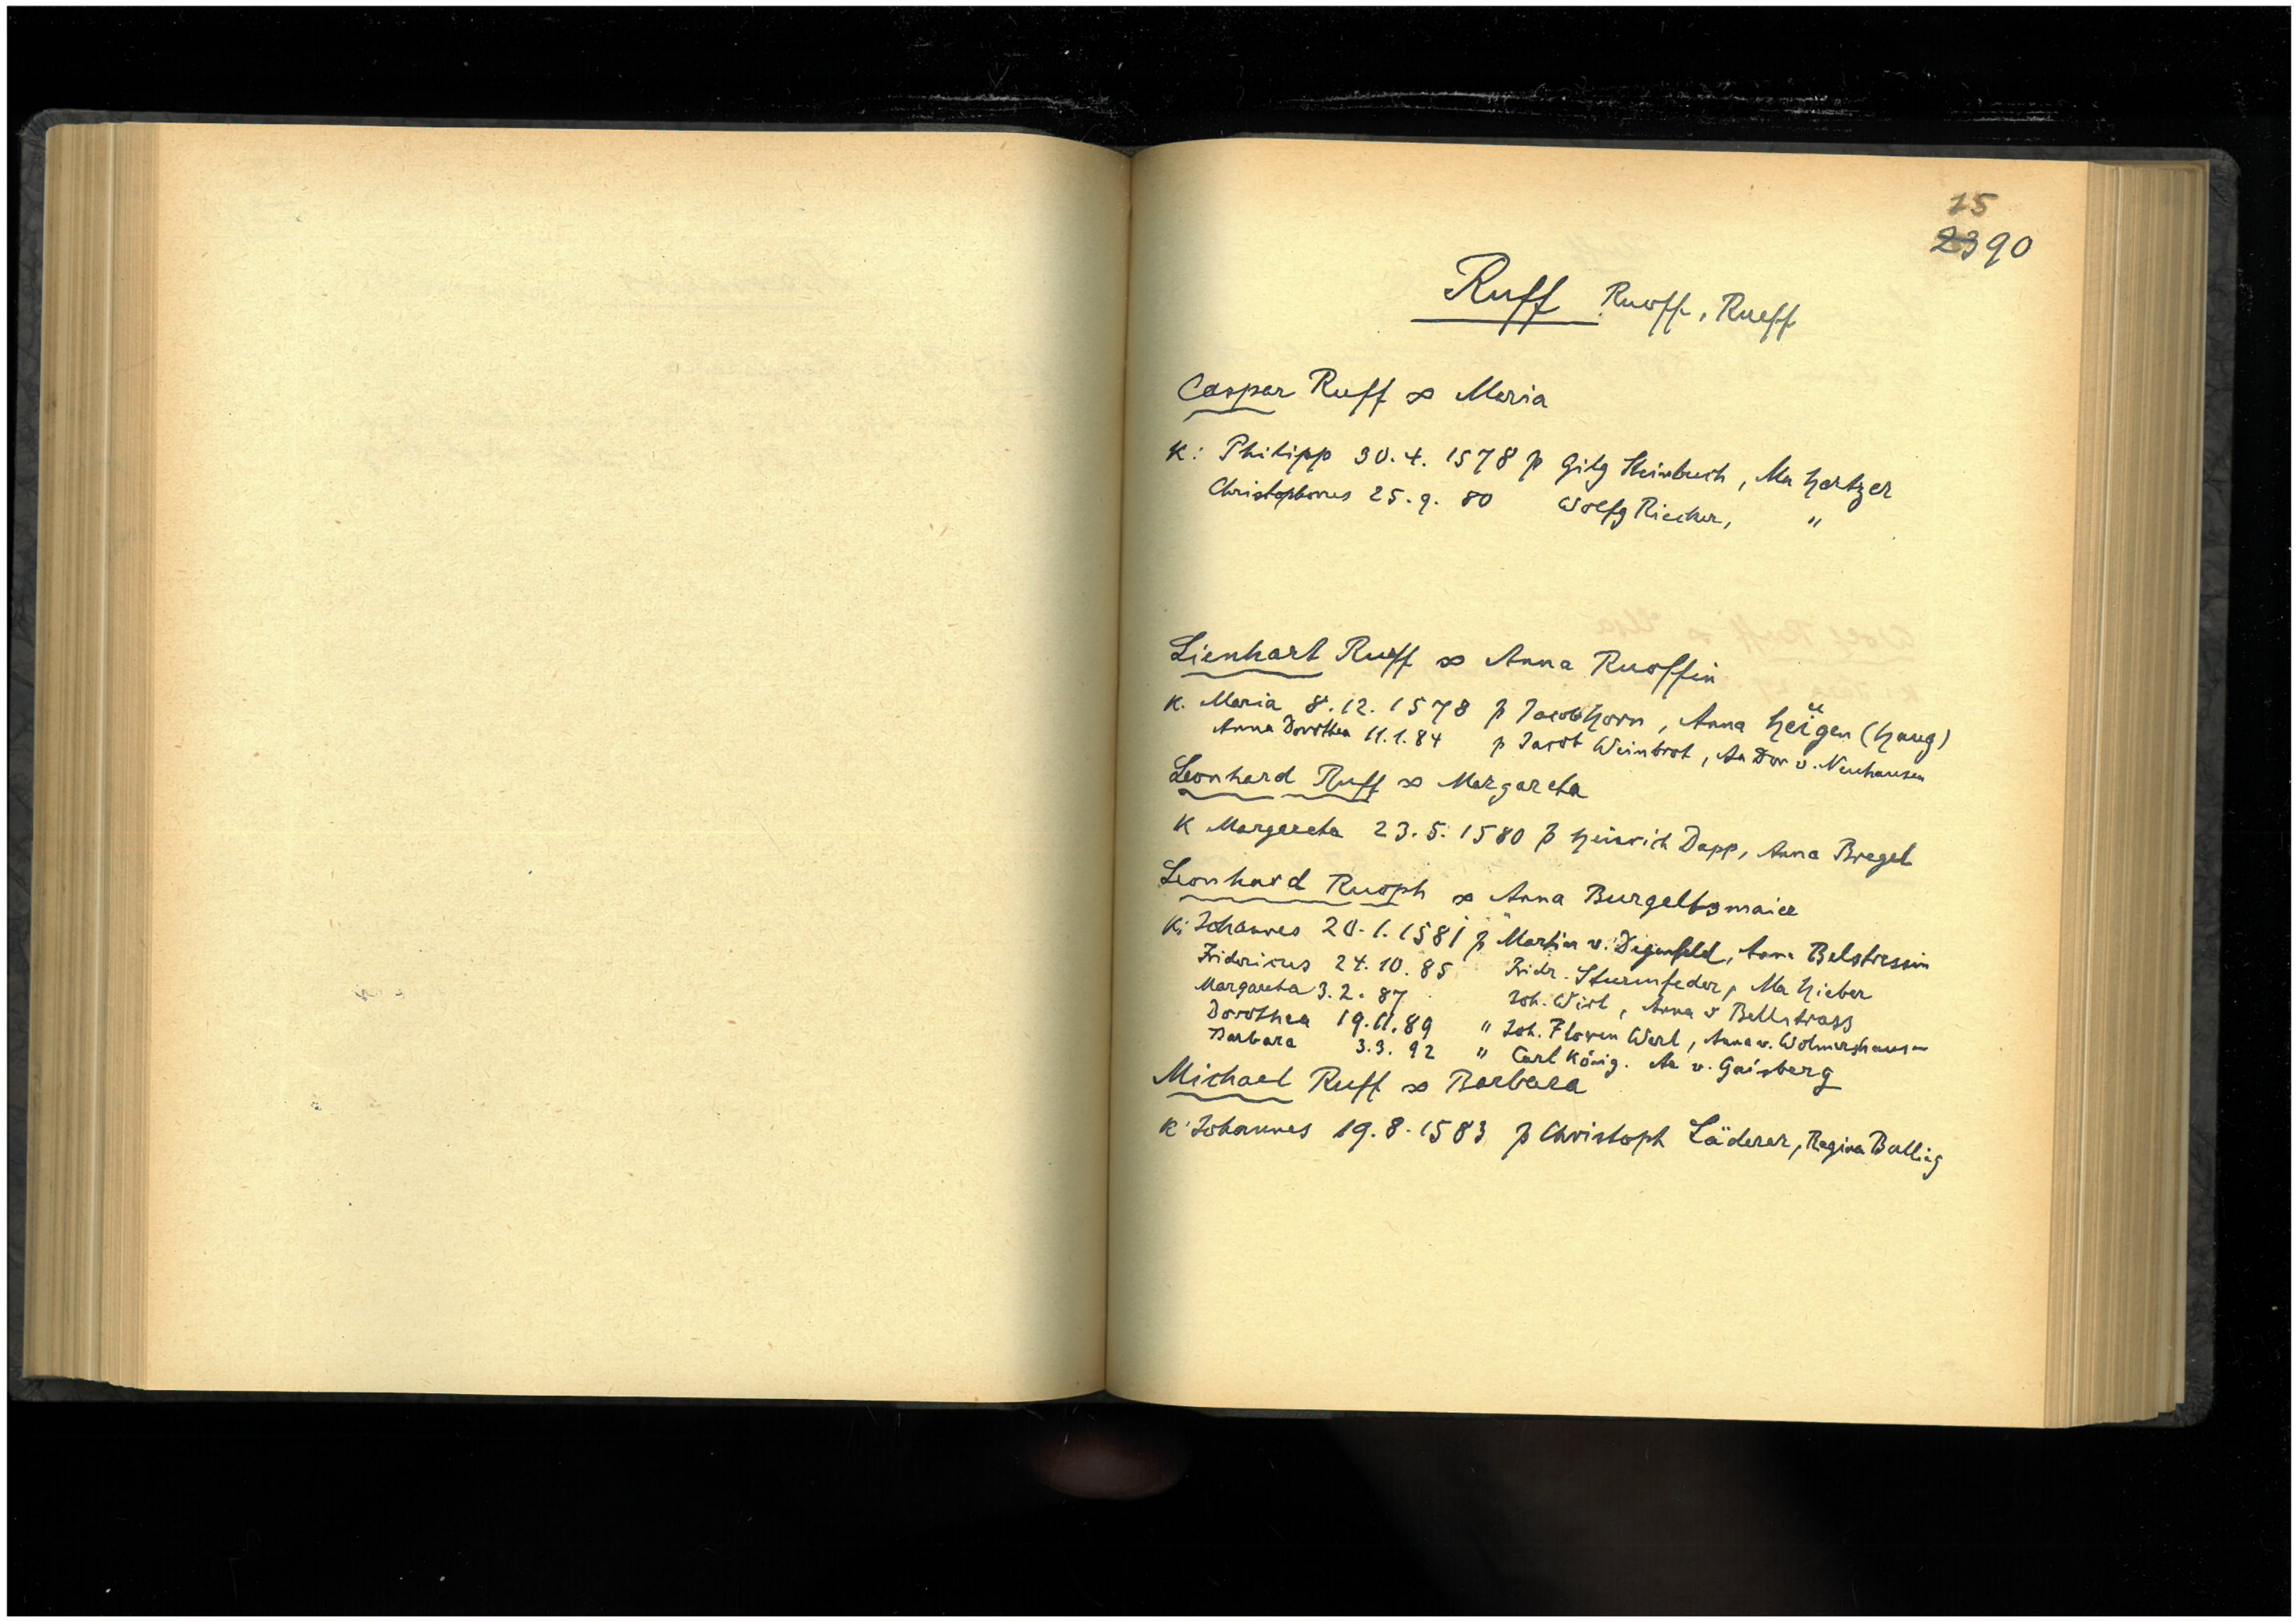 15
2390
Ruff Ruoff, Rueff
Caspar Ruff ∞ Maria
K: Philipp 30.4. 1578 p Gilg Steinbuch, Ma Hertzer
Christophorus 25.9. 80 Wolfg Riecker, "
Lienhart Rueff ∞ Anna Ruoffin
K. Maria 8.12.1578 p Jacob Horn, Anna (Haug)
Anna Dorothea 11.1.84 p Jacob Weinbrot, An Dor v. Neuhausen
Leonhard Ruff ∞ Margareta
K Margareta 23.5.1580 p Heinrich Dapp, Anna Bregel
Leonhard Ruoph ∞ Anna
K: Johannes 20.1.1581 p Martin v. Degenfeld, Anna Belstressin
Fridericus 24.10.85 Fridr. Sturmfeder, Ma Hieber
Margareta 3.2.87 Joh. Wirt, Anna v Bellstrass
Dorothea 19.11.89 " Joh. Werl, Anna v. Wolmershausen
Barbara 3.3.92 " Carl König. An v. Gaisberg
Michael Ruff ∞ Barbara
K: Johannes 19.8.1583 p Christoph Läderer, Regina Balling